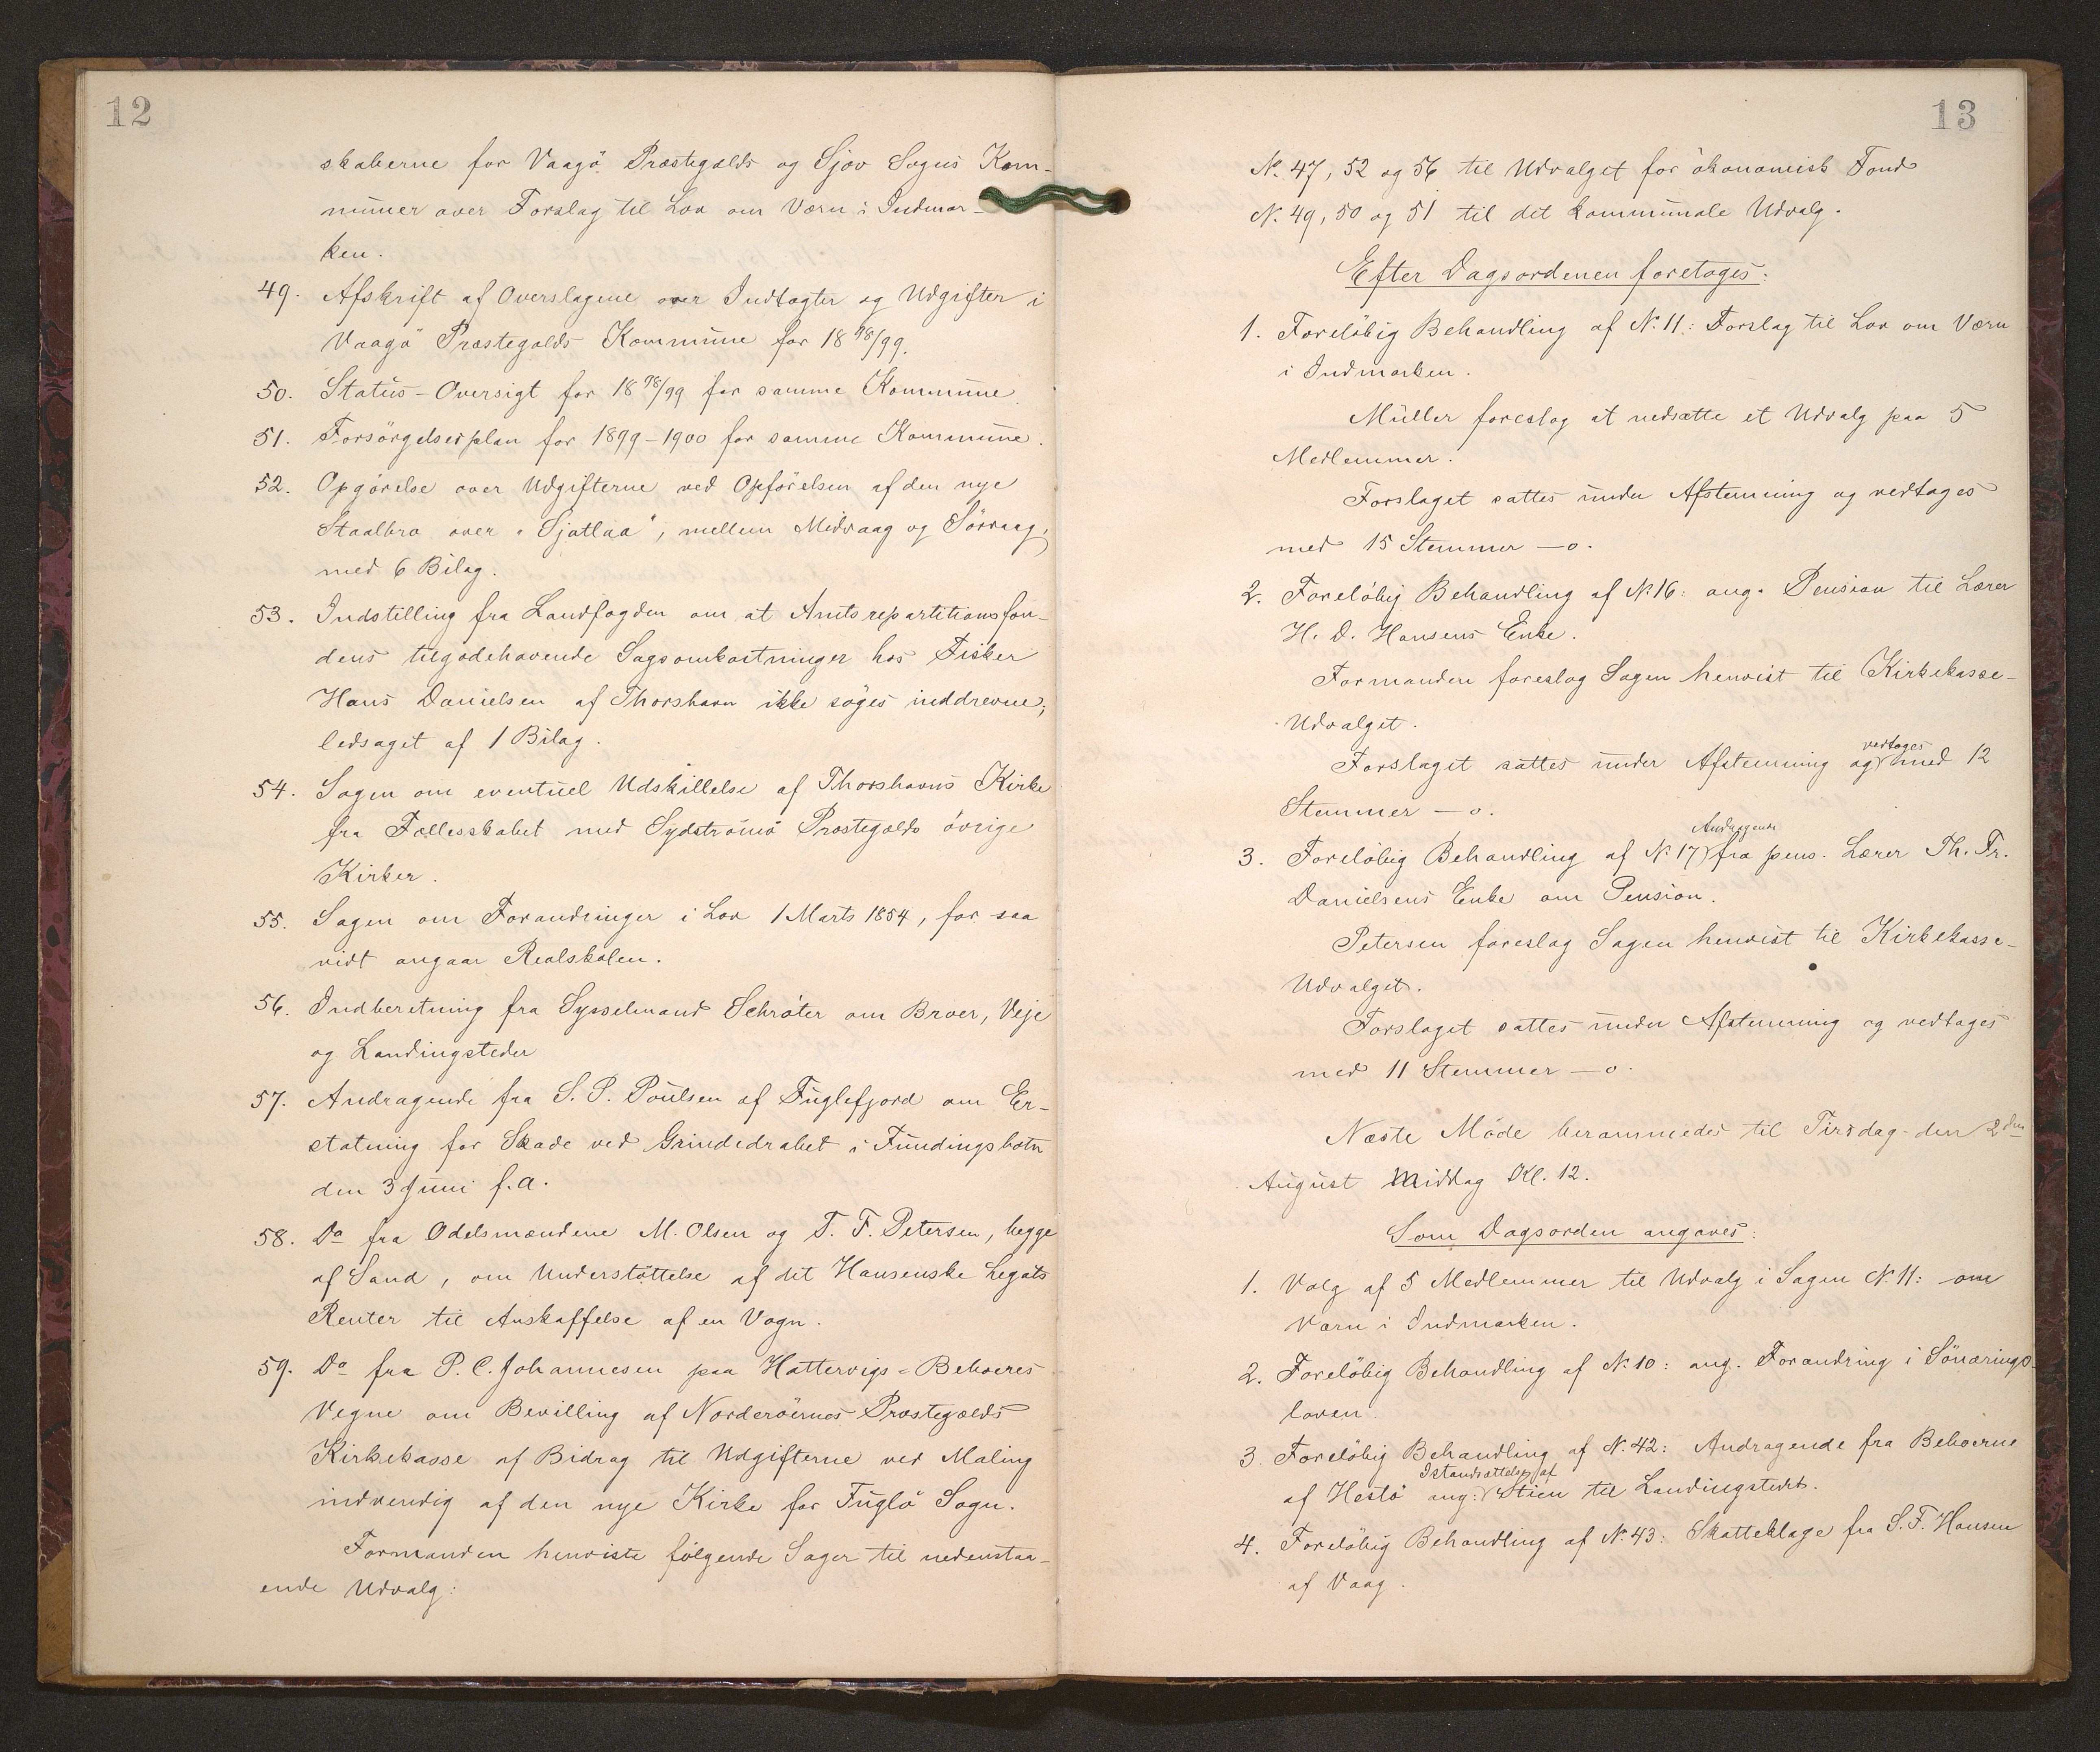 12
skaberne for Vaagö Præstegælds og Sjov Sogns Kom-
muner over Forslag til Lov om Værn i Indmar-
ken.
49. Afskrift af Overslagene over Indtægter og Udgifter i
Vaagö Præstegælds Kommune for 18 98/99.
50. Status-Oversigt for 18 98/99 for samme Kommune
51. Forsörgelsesplan for 1899-1900 for samme Kommune.
52. Opgörelse over Udgifterne ved Opförelsen af den nye
Staalbro over "Sjatlaa", mellem Midvaag og Sörvaag,
med 6 Bilag.
53. Indstilling fra Landfogden om at Amtsrepartitionsfon-
dens tilgodehavende Sagsomkostninger hos Fisker
Hans Danielsen af Thorshavn ikke söges inddrevne;
ledsaget af 1 Bilag.
54. Sagen om eventuel Udskillelse af Thorshavns Kirke
fra Fællesskabet med Sydströmö Præstegælds övrige
Kirker.
55. Sagen om Forandringer i Lov 1 Marts 1854, for saa
vidt angaar Realskolen.
56. Indberetning fra Sysselmand Schröter om Broer, Veje
og Landingsteder
57. Andragende fra S. P. Poulsen af Fuglefjord om Er-
statning for Skade ved Grindedrabet i Fundingsbotn
den 3 Juni f.a.
58. Do fra Odelsmændene M. Olsen og T. F. Petersen, begge
af Sand, om Understöttelse af det Hansenske Legats
Renter til Anskaffelse af en Vogn.
59. Do fra P. C. Johannesen paa Hattervigs-Beboeres
Vegne om Bevilling af Norderöernes Præstegælds
Kirkekasse af Bidrag til Udgifterne ved Maling
indvendig af den nye Kirke for Fuglö Sogn.
Formanden henviste fölgende Sager til nedenstaa-
ende Udvalg:
13
N. 47, 52 og 56 til Udvalget for ökonomisk Fond
N. 49, 50 og 51 til det kommunale Udvalg.
Efter Dagsordenen foretoges:
1. Forelöbig Behandling af N. 11: Forslag til Lov om Værn
i Indmarken.
Müller foreslog at nedsætte et Udvalg paa 5
Medlemmer.
Forslaget sattes under Afstemning og vedtoges
med 15 Stemmer — o.
2. Forelöbig Behandling af N. 16: ang. Pension til Lærer
H. D. Hansens Enke.
Formanden foreslog Sagen henvist til Kirkekasse-
Udvalget.
Forslaget sattes under Afstemning og vedtoges med 12
Stemmer — o.
3. Forelöbig Behandling af N. 17 Andragende fra pens. Lærer Th. Fr.
Danielsens Enke om Pension.
Petersen foreslog Sagen henvist til Kirkekasse-
Udvalget.
Forslaget sattes under Afstemning og vedtoges
med 11 Stemmer — o.
Næste Möde berammedes til Tirsdag den 2den
August Middag Kl. 12.
Som Dagsorden angaves:
1. Valg af 5 Medlemmer til Udvalg i Sagen N. 11: om
Værn i Indmarken.
2. Forelöbig Behandling af N. 10: ang. Forandring i Sönærings-
loven.
3. Forelöbig Behandling af N. 42: Andragende fra Beboerne
af Hestö ang: Istandsættelse af Stien til Landingstedet.
4. Forelöbig Behandling af N. 43: Skatteklage fra S. F. Hansen
af Vaag.